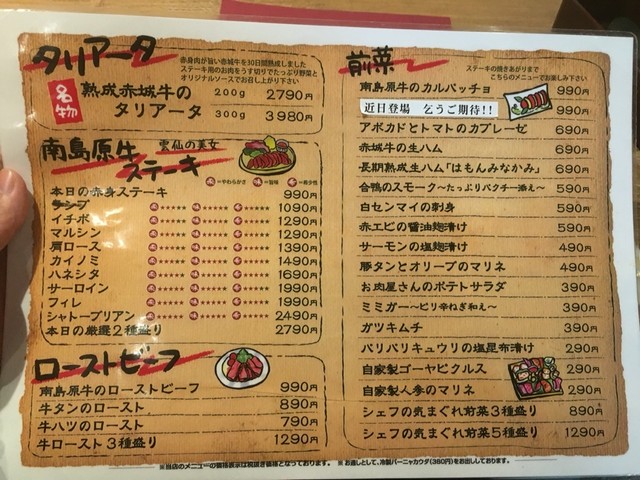 タリアータ
赤身肉が旨い赤城牛を30日間熟成しました
ステーキ用のお肉をうす切りでたっぷり野菜と
オリジナルソースでお召し上がり下さい
名物
熟成赤城牛の
タリアータ
200g 2790円
300g 3980円
南島原牛
雲仙の美女
ステーキ
本日の赤身ステーキ 990円
ランプ 1090円
イチボ 1290円
マルシン 1290円
肩ロース 1390円
カイノミ 1490円
ハネシタ 1690円
サーロイン 1990円
フィレ 1990円
シャトーブリアン 2490円
本日の厳選2種盛り 2790円
ローストビーフ
南島原牛のローストビーフ 990円
牛タンのロースト 890円
牛ハツのロースト 790円
牛ロースト3種盛り 1290円
前菜
ステーキの焼きあがりまで
こちらのメニューでお楽しみ下さい
南島原牛のカルパッチョ 990円
近日登場 乞うご期待!! 990円
アボカドとトマトのカプレーゼ 690円
赤城牛の生ハム 690円
長期熟成生ハム「はもんみなかみ」 690円
合鴨のスモーク～たっぷりパクチー添え～ 590円
白センマイの刺身 590円
赤エビの醤油麹漬け 590円
サーモンの塩麹漬け 490円
豚タンとオリーブのマリネ 490円
お肉屋さんのポテトサラダ 390円
ミミガー～ピリ辛ねぎ和え～ 390円
ガツキムチ 390円
パリパリキュウリの塩昆布漬け 290円
自家製ゴーヤピクルス 290円
自家製人参のマリネ 290円
シェフの気まぐれ前菜3種盛り 890円
シェフの気まぐれ前菜5種盛り 1290円
※当店のメニューの価格表示は税抜き価格となっております。 ※お通しとして、冷製バーニャカウダ(380円)をお出ししております。